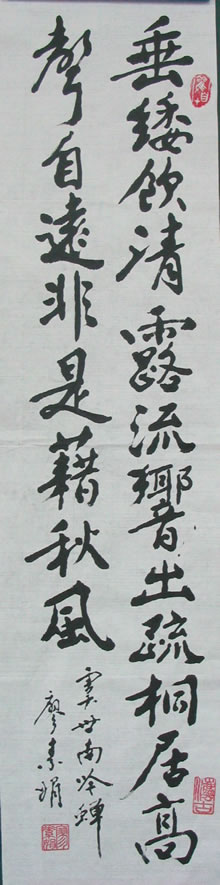 垂緌飲清露流響出疏桐居高
聲自遠非是藉秋風
虞世南吟蟬
廖素娟